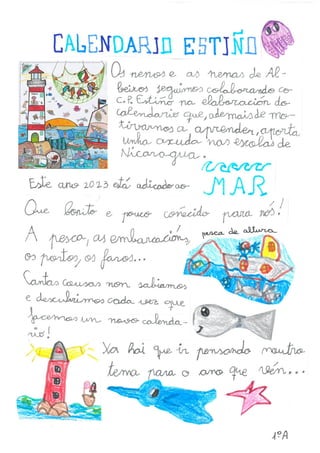 CALENDARIO ESTIÑO
Os nenos e as nenas de Al-
beiros seguimos colaborando co
C.P. Estiño na elaboración do
calendario que, ademais de mo-
tivarnos a aprender, aporta
unha axuda nas escolas de
Nicaragua.
Este ano 2023 está adicado ao MAR
Que bonito e pouco coñecido para nós!
A pesca, as embarcacións,
pesca de altura
os portos, os faros...
Cantas cousas non sabiamos
e descubrimos cada vez que
facemos un novo calenda-
rio!
Xa hai que ir pensando noutro
tema para o ano que vén...
1ºA